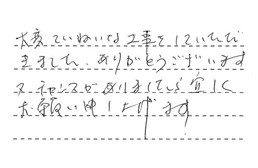 大変ていねいな工事をしていただ
きました。ありがとうございます
又チャンスがありましたら宜しく
お願い申し上げます